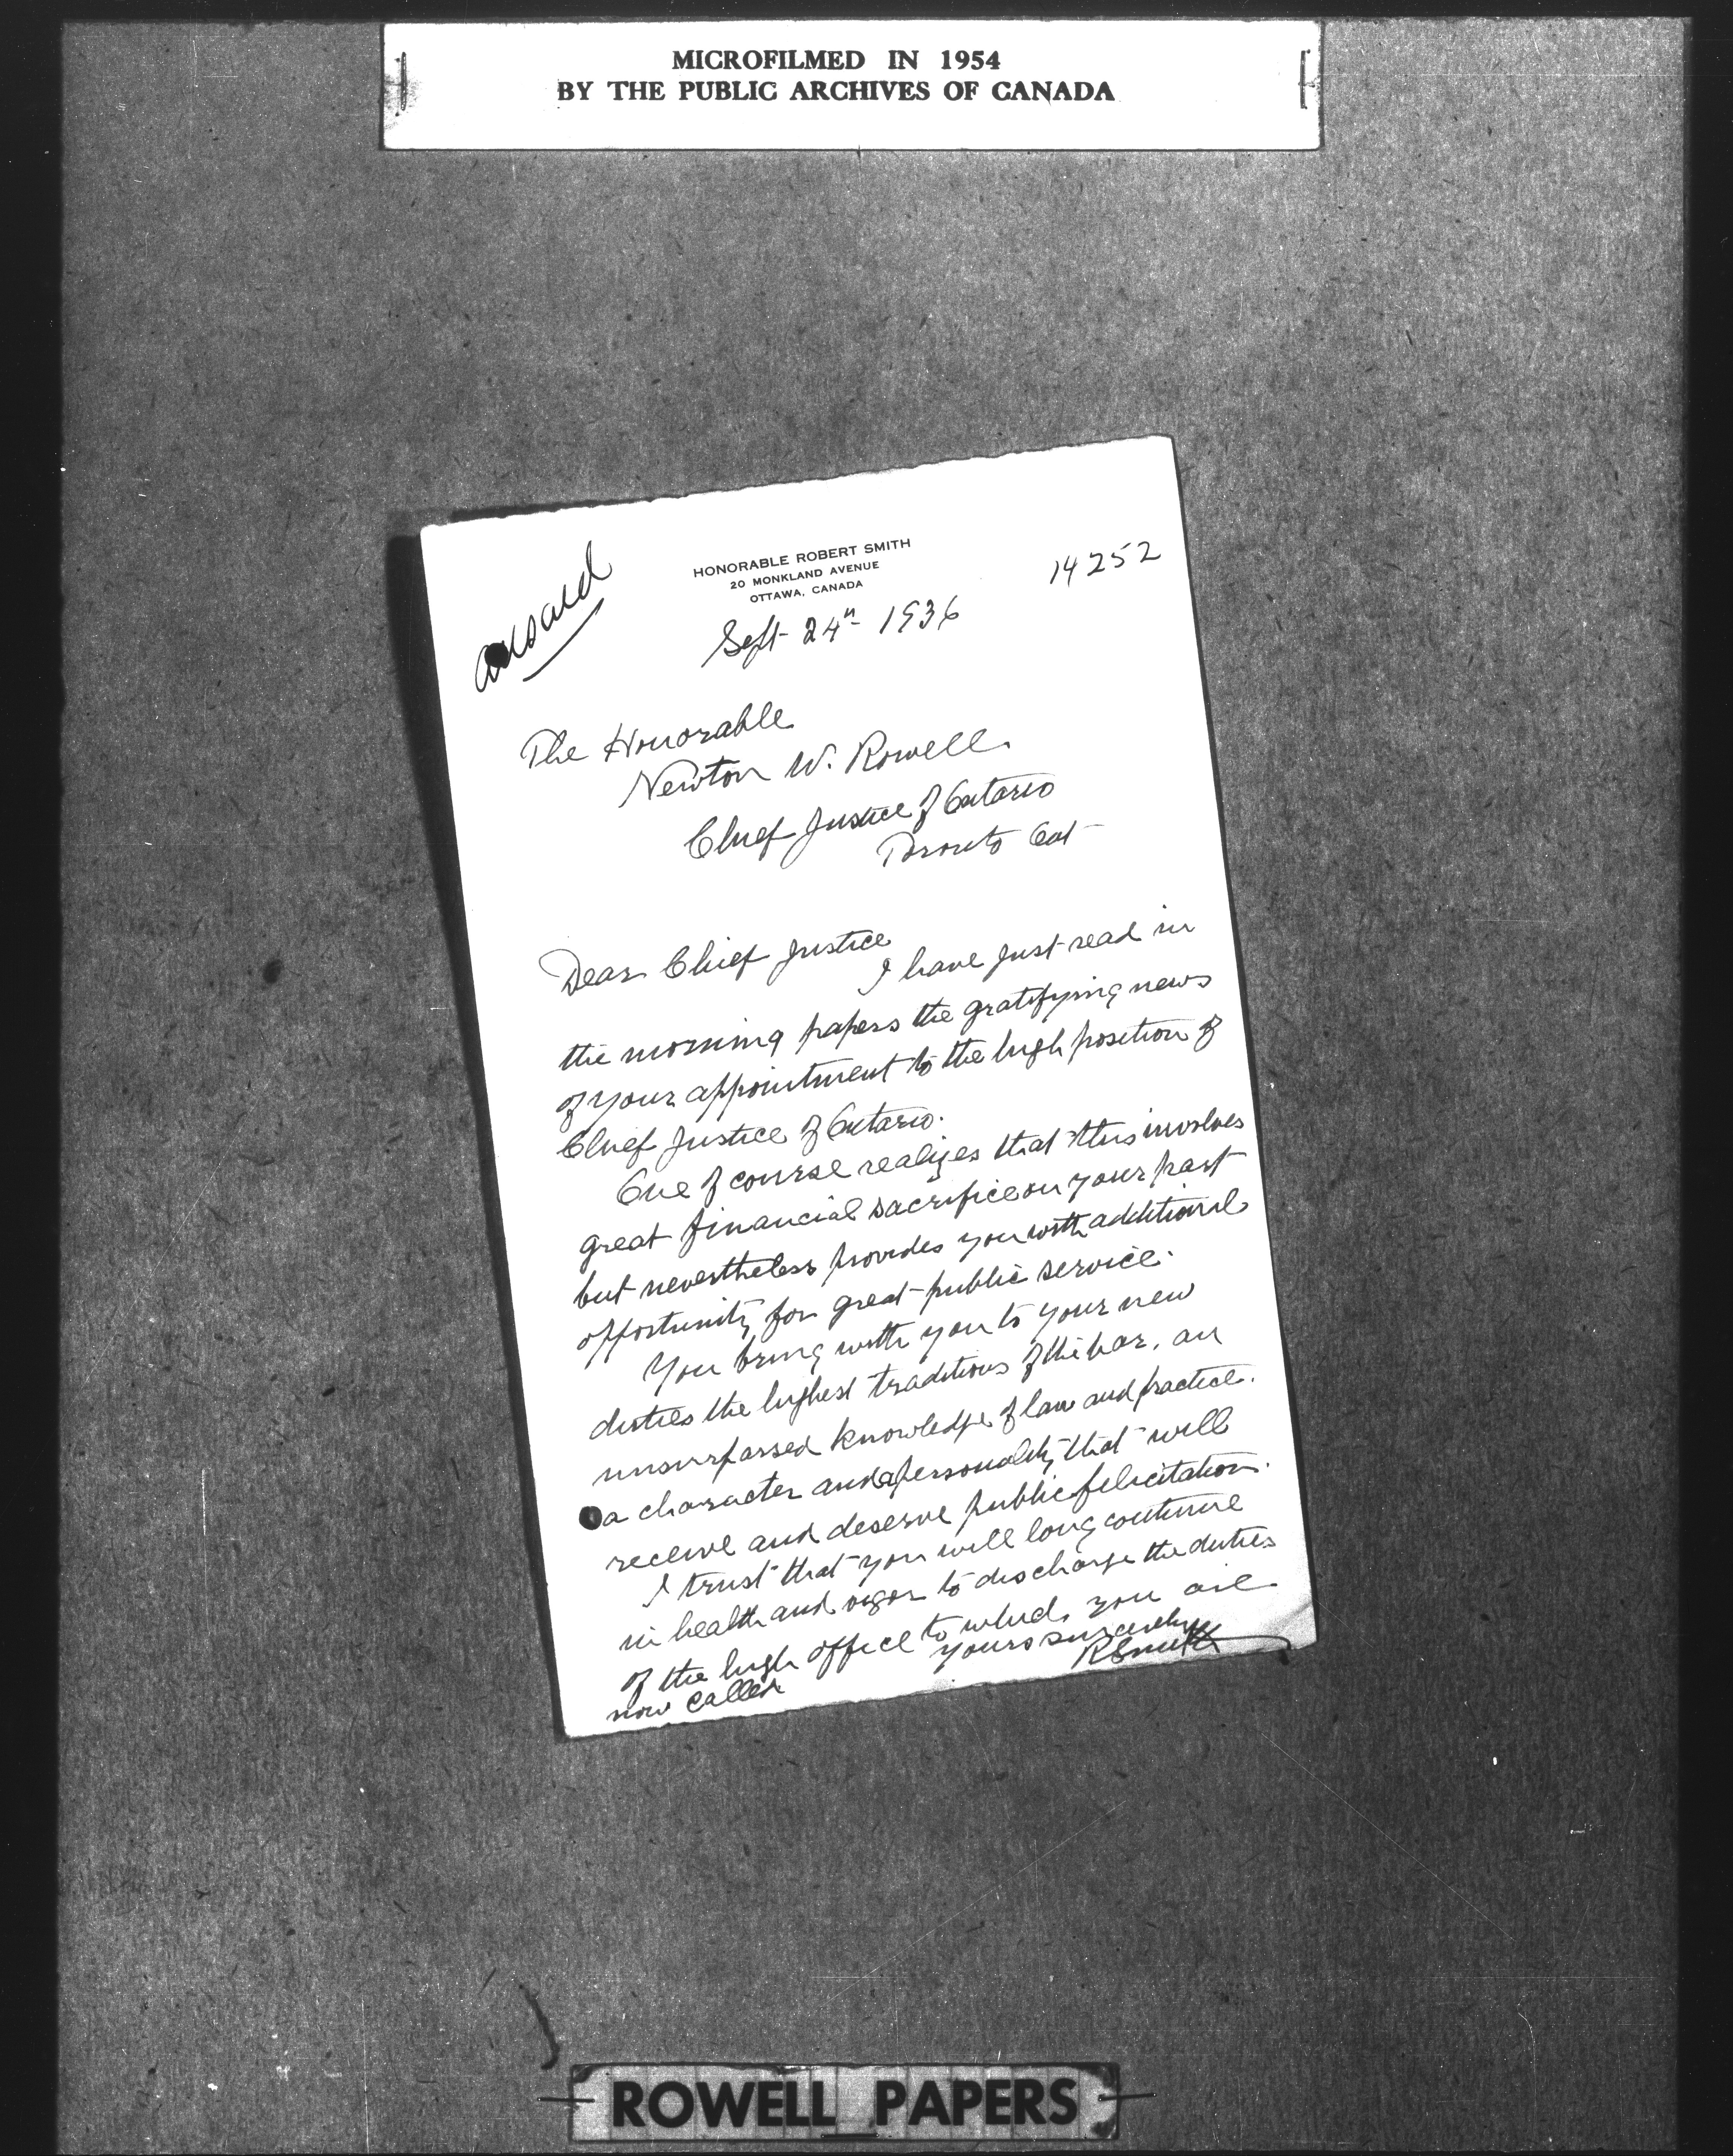 MICROFILMED IN 1954
BY THE PUBLIC ARCHIVES OF CANADA
HONORABLE ROBERT SMITH
20 MONKLAND AVENUE
OTTAWA, CANADA
14252
Sept 24th 1936
The Honorable
Newton W. Rowell
Chief Justice of Ontario
Toronto Ont
Dear Chief Justice
I have just read in
the morning papers the gratifying news
of your appointment to the high position of
Chief Justice of Ontario.
One of course realizes that this involves
great financial sacrifice on your part
but nevertheless provides you with additional
opportunity for great public service.
You bring with you to your new
duties the highest traditions of the bar, an
unsurpassed knowledge of law and practice.
a character and a personality that will
receive and deserve public felicitation.
I trust that you will long continue
in health and vigor to discharge the duties
of the high office to which you are
now called
Yours sincerely
R Smith
ROWELL PAPERS